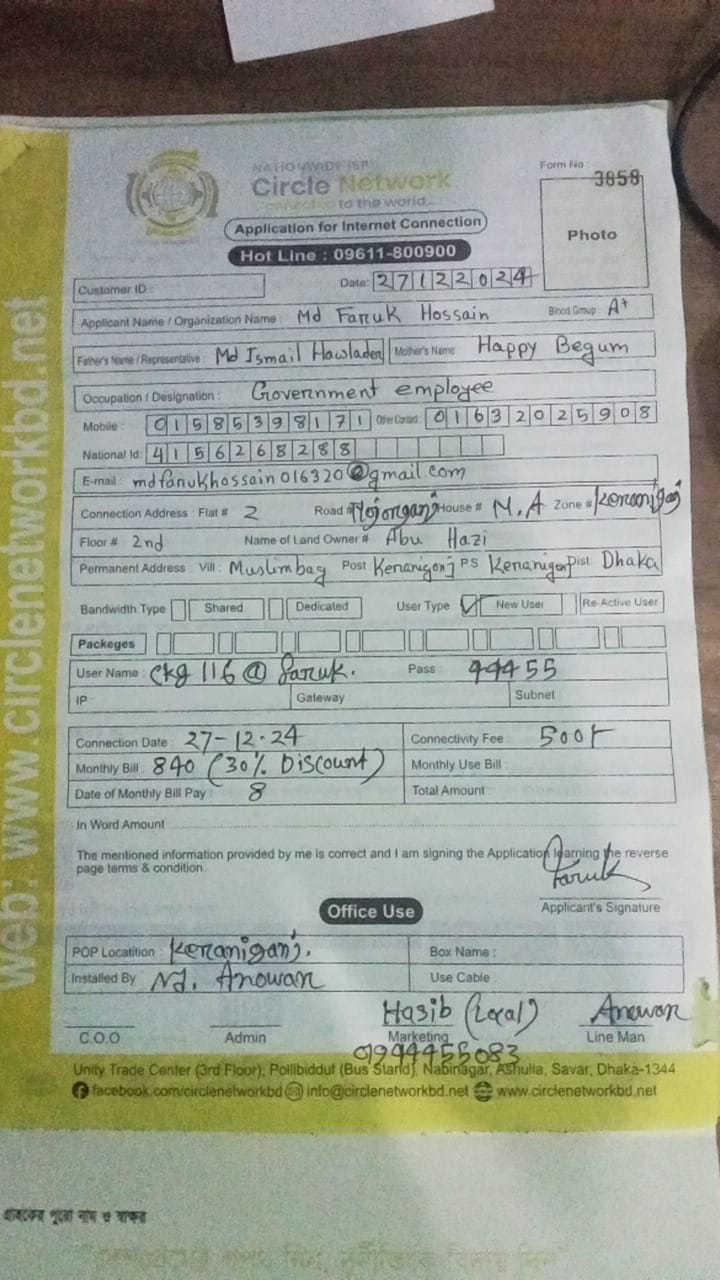 NATIONWIDE ISP
Circle Network
Connected to the world...
Application for Internet Connection
Hot Line : 09611-800900
Form No :
3858
Photo
Customer ID :
Date: 27122024
Applicant Name / Organization Name : Md Faruk Hossain Blood Group : A+
Father's Name / Representative : Md Ismail Hawlader Mother's Name Happy Begum
Occupation / Designation : Government employee
Mobile : 01585398171 Other Contact : 01632025908
National Id: 4156268288
E-mail : mdfarukhossain016320@gmail.com
Connection Address : Flat # 2 Road # House # M.A Zone # Keraniganj
Floor # 2nd Name of Land Owner # Abu Hazi
Permanent Address : Vill : Muslimbag Post Keranigonj PS Keranigonj Dist Dhaka
Bandwidth Type Shared Dedicated User Type New User Re-Active User
Packeges
User Name : ckg 116 @ faruk. Pass 44455
IP Gateway Subnet
Connection Date : 27-12-24 Connectivity Fee : 500/-
Monthly Bill : 840 (30% Discount) Monthly Use Bill :
Date of Monthly Bill Pay : 8 Total Amount :
In Word Amount
The mentioned information provided by me is correct and I am signing the Application learning the reverse
page terms & condition.
Faruk
Applicant's Signature
Office Use
POP Locatition : Keraniganj. Box Name :
Installed By Md. Anowar Use Cable :
Hasib (Local) Anowar
C.O.O Admin Marketing Line Man
01944455083
Unity Trade Center (3rd Floor), Pollibiddut (Bus Stand), Nabinagar, Ashulia, Savar, Dhaka-1344
facebook.com/circlenetworkbd info@circlenetworkbd.net www.circlenetworkbd.net
web: www.circlenetworkbd.net
গ্রাহকের পুরো নাম ও স্বাক্ষর